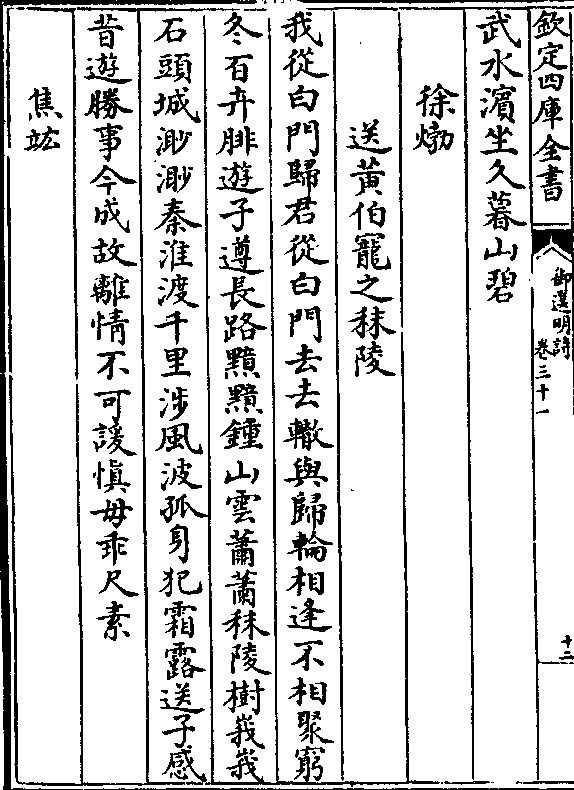 欽定四庫全書
御選明詩
卷三十一
十二
武水濱坐久暮山碧
徐𤊹
送黃伯寵之秣陵
我從白門歸君從白門去去轍與歸輪相逢不相聚窮
冬百卉腓遊子遵長路黯黯鍾山雲蕭蕭秣陵樹峩峩
石頭城渺渺秦淮渡千里涉風波孤身犯霜露送子感
昔遊勝事今成故離情不可諼慎毋乖尺素
焦竑